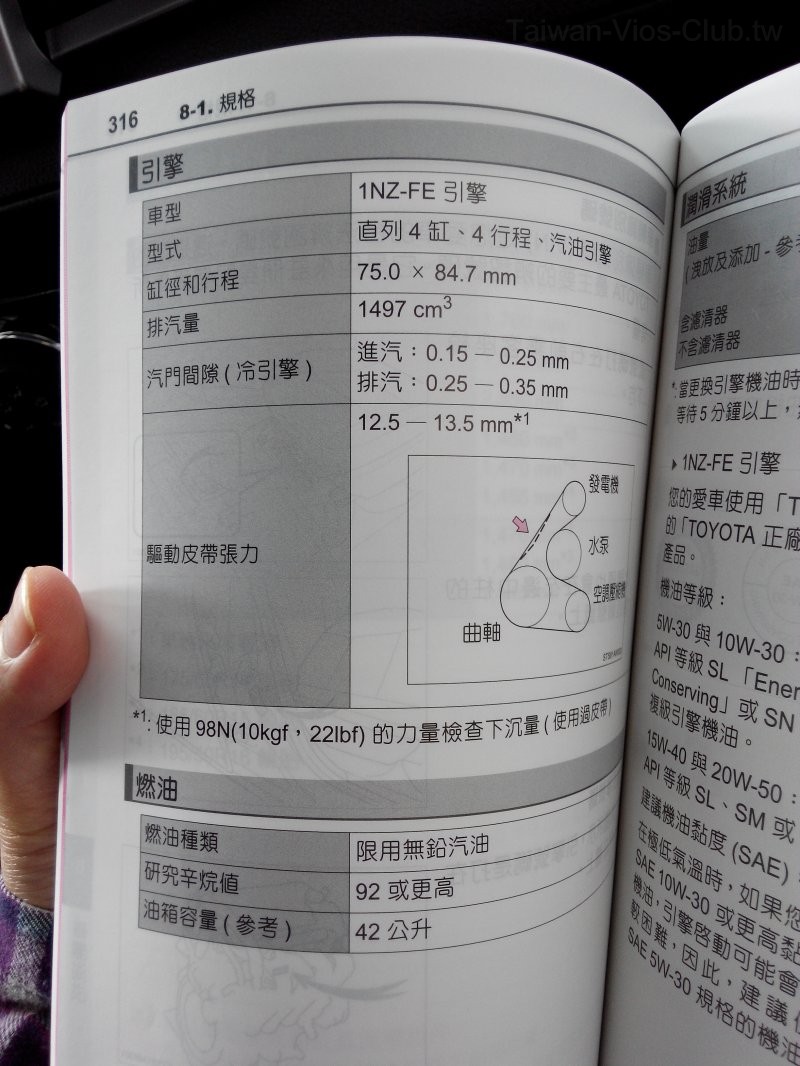 Taiwan-Vios-Club.tw
316 8-1. 規格
引擎
車型 1NZ-FE 引擎
型式 直列 4 缸、4 行程、汽油引擎
缸徑和行程 75.0 × 84.7 mm
排汽量 1497 cm3
汽門間隙 ( 冷引擎 ) 進汽：0.15 — 0.25 mm
排汽：0.25 — 0.35 mm
驅動皮帶張力 12.5 — 13.5 mm*1
發電機
水泵
空調壓縮機
曲軸
*1: 使用 98N(10kgf，22lbf) 的力量檢查下沉量 ( 使用過皮帶 )
燃油
燃油種類 限用無鉛汽油
研究辛烷值 92 或更高
油箱容量 ( 參考 ) 42 公升
潤滑系統
油量
( 洩放及添加 - 參考
含濾清器
不含濾清器
*: 當更換引擎機油時
等待 5 分鐘以上，
1NZ-FE 引擎
您的愛車使用「T
的「TOYOTA 正廠
產品。
機油等級：
5W-30 與 10W-30：
API 等級 SL 「Ener
Conserving」或 SN
複級引擎機油。
15W-40 與 20W-50：
API 等級 SL、SM 或
建議機油黏度 (SAE)
在極低氣溫時，如果您
SAE 10W-30 或更高黏
機油，引擎啟動可能會
較困難，因此，建議
SAE 5W-30 規格的機油